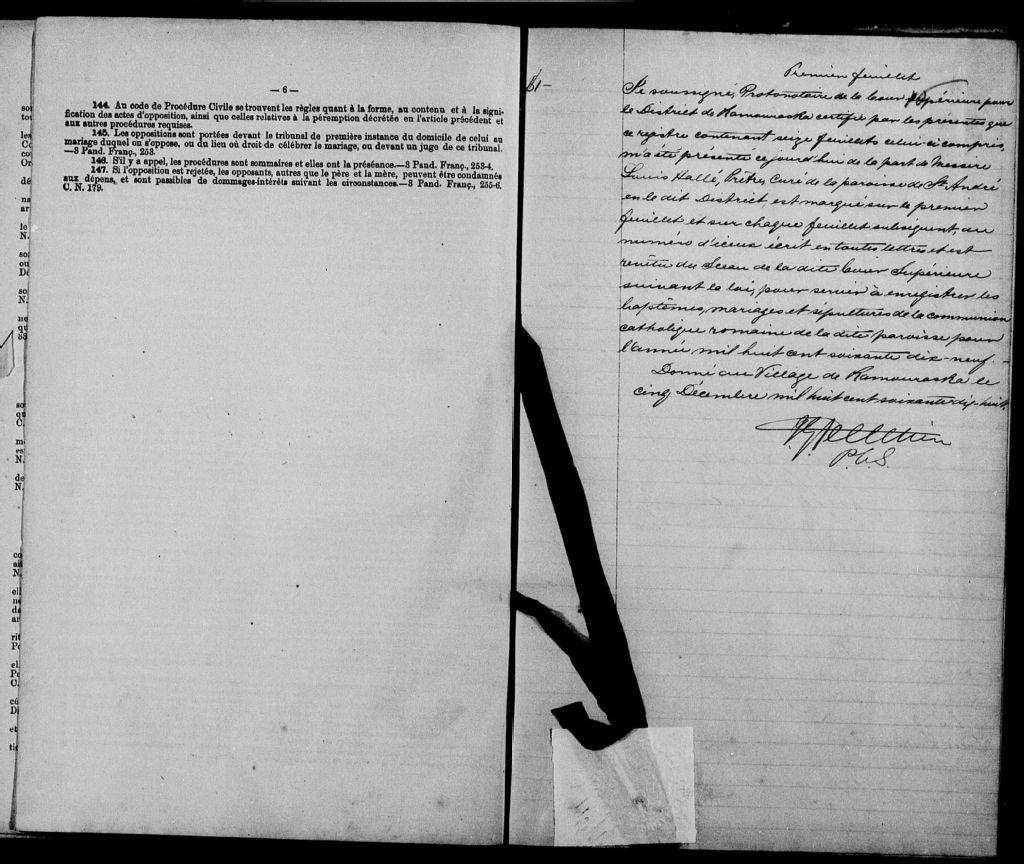 — 6 —
144. Au code de Procédure Civile se trouvent les règles quant à la forme, au contenu et à la signi-
fication des actes d'opposition, ainsi que celles relatives à la péremption décrétée en l'article précédent et
aux autres procédures requises.
145. Les oppositions sont portées devant le tribunal de première instance du domicile de celui au
mariage duquel on s'oppose, ou du lieu où droit de célébrer le mariage, ou devant un juge de ce tribunal.
—3 Pand. Franç., 253.
146. S'il y a appel, les procédures sont sommaires et elles ont la préséance.—3 Pand. Franç., 253-4.
147. Si l'opposition est rejetée, les opposants, autres que le père et la mère, peuvent être condamnés
aux dépens, et sont passibles de dommages-intérêts suivant les circonstances.—3 Pand. Franç., 255-6.
C. N. 179.
Premier feuillet
Je soussigné, Protonotaire de la Cour Supérieure pour
le District de Kamouraska certifie par les présentes que
ce registre contenant seize feuillets celui-ci compris,
m'a été présenté ce jourd'hui de la part de Messire
Louis Hallé, Prêtre, Curé de la paroisse de St. André
en le dit District, est marqué sur le premier
feuillet et sur chaque feuillet subséquent, du
numéro d'iceux écrit en toutes lettres et est
revêtu du Sceau de la dite Cour Supérieure
suivant la loi, pour servir à enregistrer les
baptêmes, mariages et sépultures de la communion
catholique romaine de la dite paroisse pour
l'année mil huit cent soixante dix-neuf. —
Donné au Village de Kamouraska le
cinq Décembre mil huit cent soixante dix-huit.
Pelletier
P.C.S.